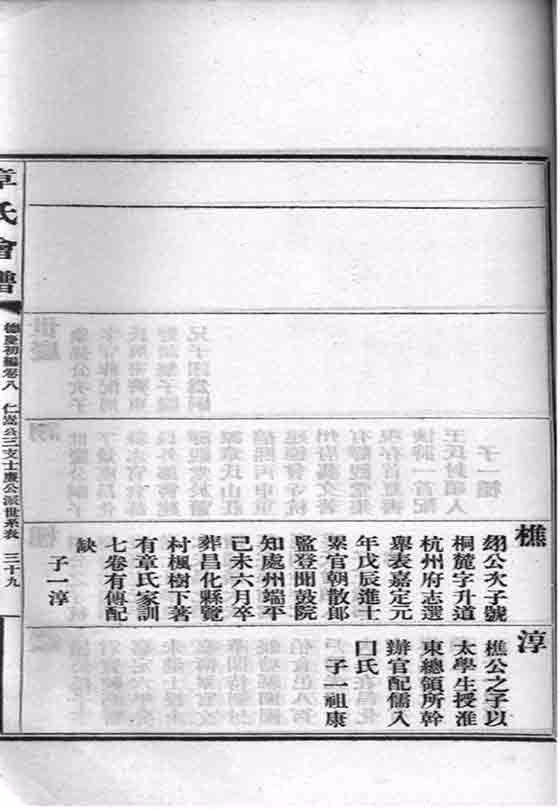 樵
綡公次子號
桐麓字升道
杭州府志選
舉表嘉定元
年戊辰進士
累官朝散郎
監登聞鼓院
知處州端平
己未六月卒
葬昌化縣覽
村楓樹下著
有章氏家訓
七卷有傳配
缺
子一淳
淳
樵公之子以
太學生授淮
東總領所幹
辦官配儒人
口氏
子一祖康
章氏會譜
德慶初編卷八
仁嵩公三支士廉公派世系表
三十九